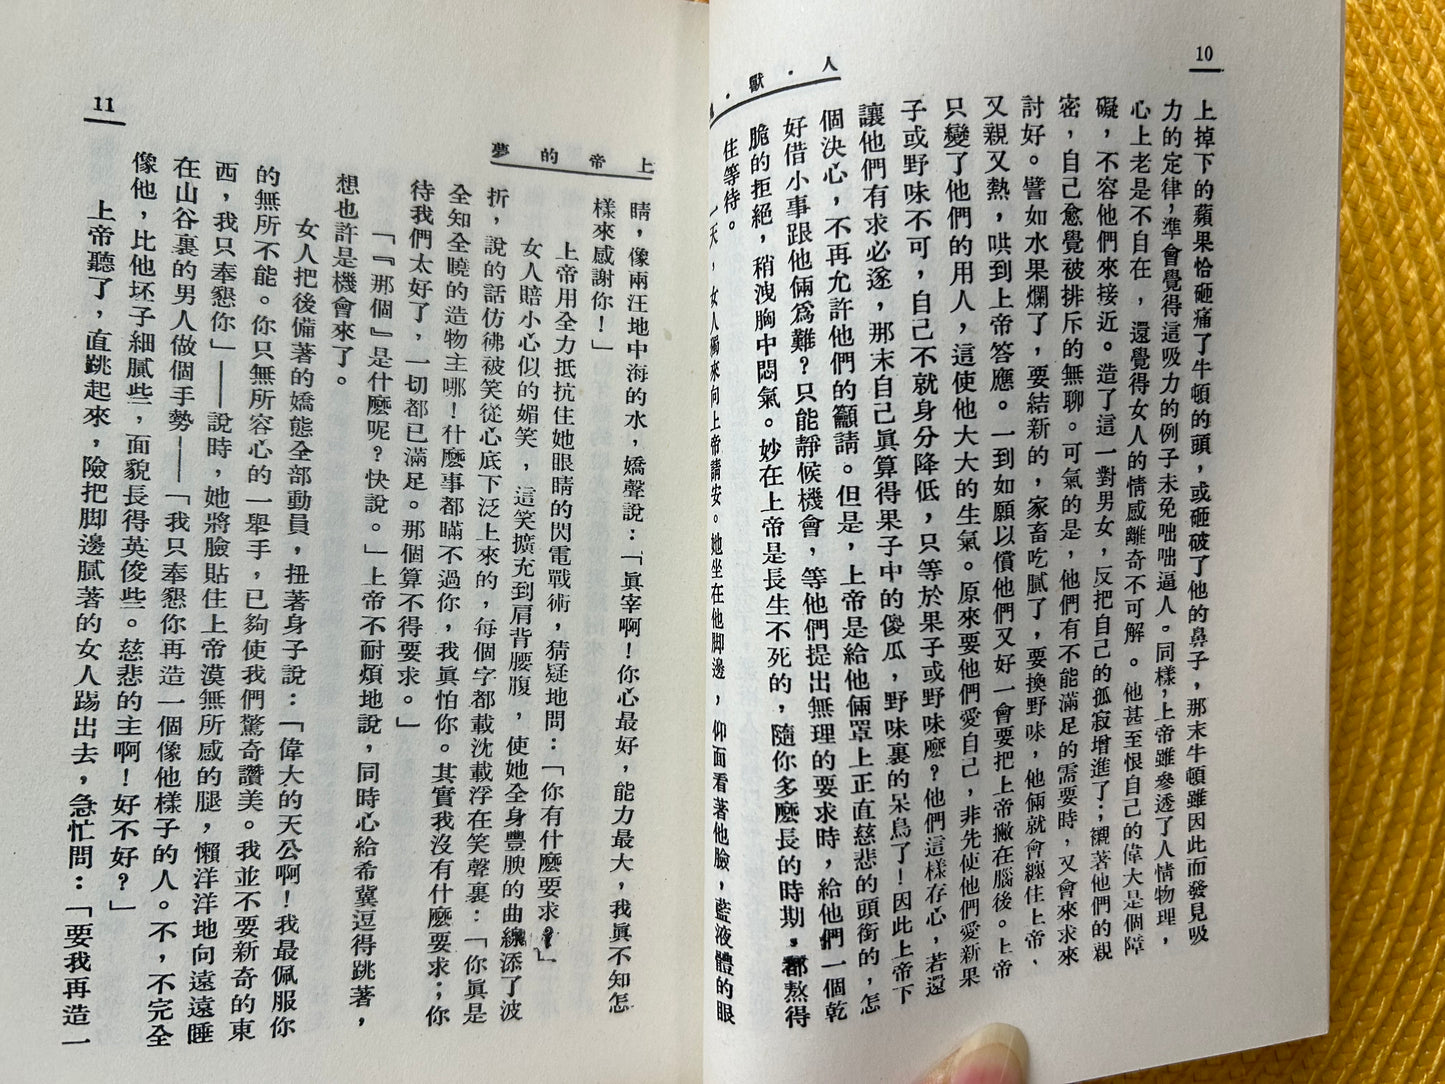 10
人・獸・
上掉下的蘋果恰砸痛了牛頓的頭，或砸破了他的鼻子，那末牛頓雖因此而發見吸
力的定律，準會覺得這吸力的例子未免咄咄逼人。同樣，上帝雖參透了人情物理，
心上老是不自在，還覺得女人的情感離奇不可解。他甚至恨自己的偉大是個障
礙，不容他們來接近。造了這一對男女，反把自己的孤寂增進了；襯著他們的親
密，自己愈覺被排斥的無聊。可氣的是，他們有不能滿足的需要時，又會來求來
討好。譬如水果爛了，要結新的，家畜吃膩了，要換野味，他倆就會纏住上帝、
又親又熱，哄到上帝答應。一到如願以償他們又好一會要把上帝撇在腦後。上帝
只變了他們的用人，這使他大大的生氣。原來要他們愛自己，非先使他們愛新果
子或野味不可，自己不就身分降低，只等於果子或野味麽？他們這樣存心，若還
讓他們有求必遂，那末自己眞算得果子中的傻瓜，野味裏的呆鳥了！因此上帝下
個決心，不再允許他們的籲請。但是，上帝是給他倆罩上正直慈悲的頭銜的，怎
好借小事跟他倆爲難？只能靜候機會，等他們提出無理的要求時，給他們一個乾
脆的拒絕，稍洩胸中悶氣。妙在上帝是長生不死的，隨你多麽長的時期，都熬得
住等待。
一天，女人獨來向上帝請安。她坐在他脚邊，仰面看著他臉，藍液體的眼
上帝的夢
11
睛，像兩汪地中海的水，嬌聲說：「眞宰啊！你心最好，能力最大，我眞不知怎
樣來感謝你！」
上帝用全力抵抗住她眼睛的閃電戰術，猜疑地問：「你有什麽要求？」
女人賠小心似的媚笑，這笑擴充到肩背腰腹，使她全身豐腴的曲線添了波
折，說的話仿彿被笑從心底下泛上來的，每個字都載沈載浮在笑聲裏：「你眞是
全知全曉的造物主哪！什麽事都瞞不過你，我眞怕你。其實我沒有什麽要求；你
待我們太好了，一切都已滿足。那個算不得要求。」
「『那個』是什麽呢？快說。」上帝不耐煩地說，同時心給希冀逗得跳著，
想也許是機會來了。
女人把後備著的嬌態全部動員，扭著身子說：「偉大的天公啊！我最佩服你
的無所不能。你只無所容心的一舉手，已夠使我們驚奇讚美。我並不要新奇的東
西，我只奉懇你」——說時，她將臉貼住上帝漠無所感的腿，懶洋洋地向遠遠睡
在山谷裏的男人做個手勢——「我只奉懇你再造一個像他樣子的人。不，不完全
像他，比他坯子細膩些，面貌長得英俊些。慈悲的主啊！好不好？」
上帝聽了，直跳起來，險把脚邊膩著的女人踢出去，急忙問：「要我再造一